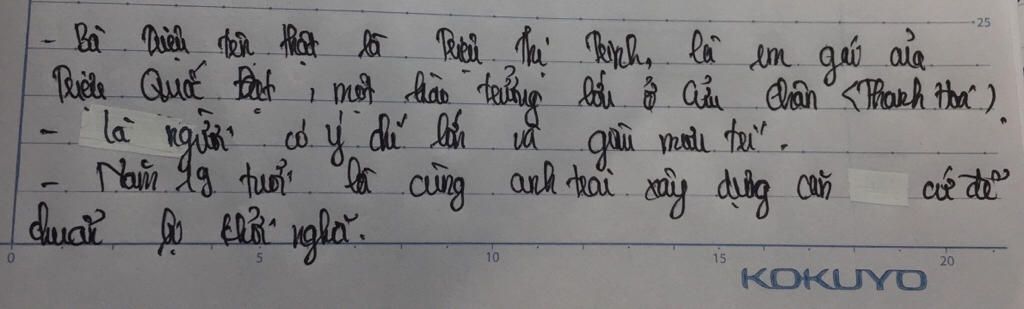 25
- Bà Triệu tên thật là Triệu Thị Trinh, là em gái của
Triệu Quốc Đạt, một hào trưởng lớn ở Cửu Chân (Thanh Hoá).
- là người có ý chí lớn và giàu mưu trí.
- Năm 19 tuổi bà cùng anh trai xây dựng căn cứ để
chuẩn bị khởi nghĩa.
0 5 10 15 20
KOKUYO